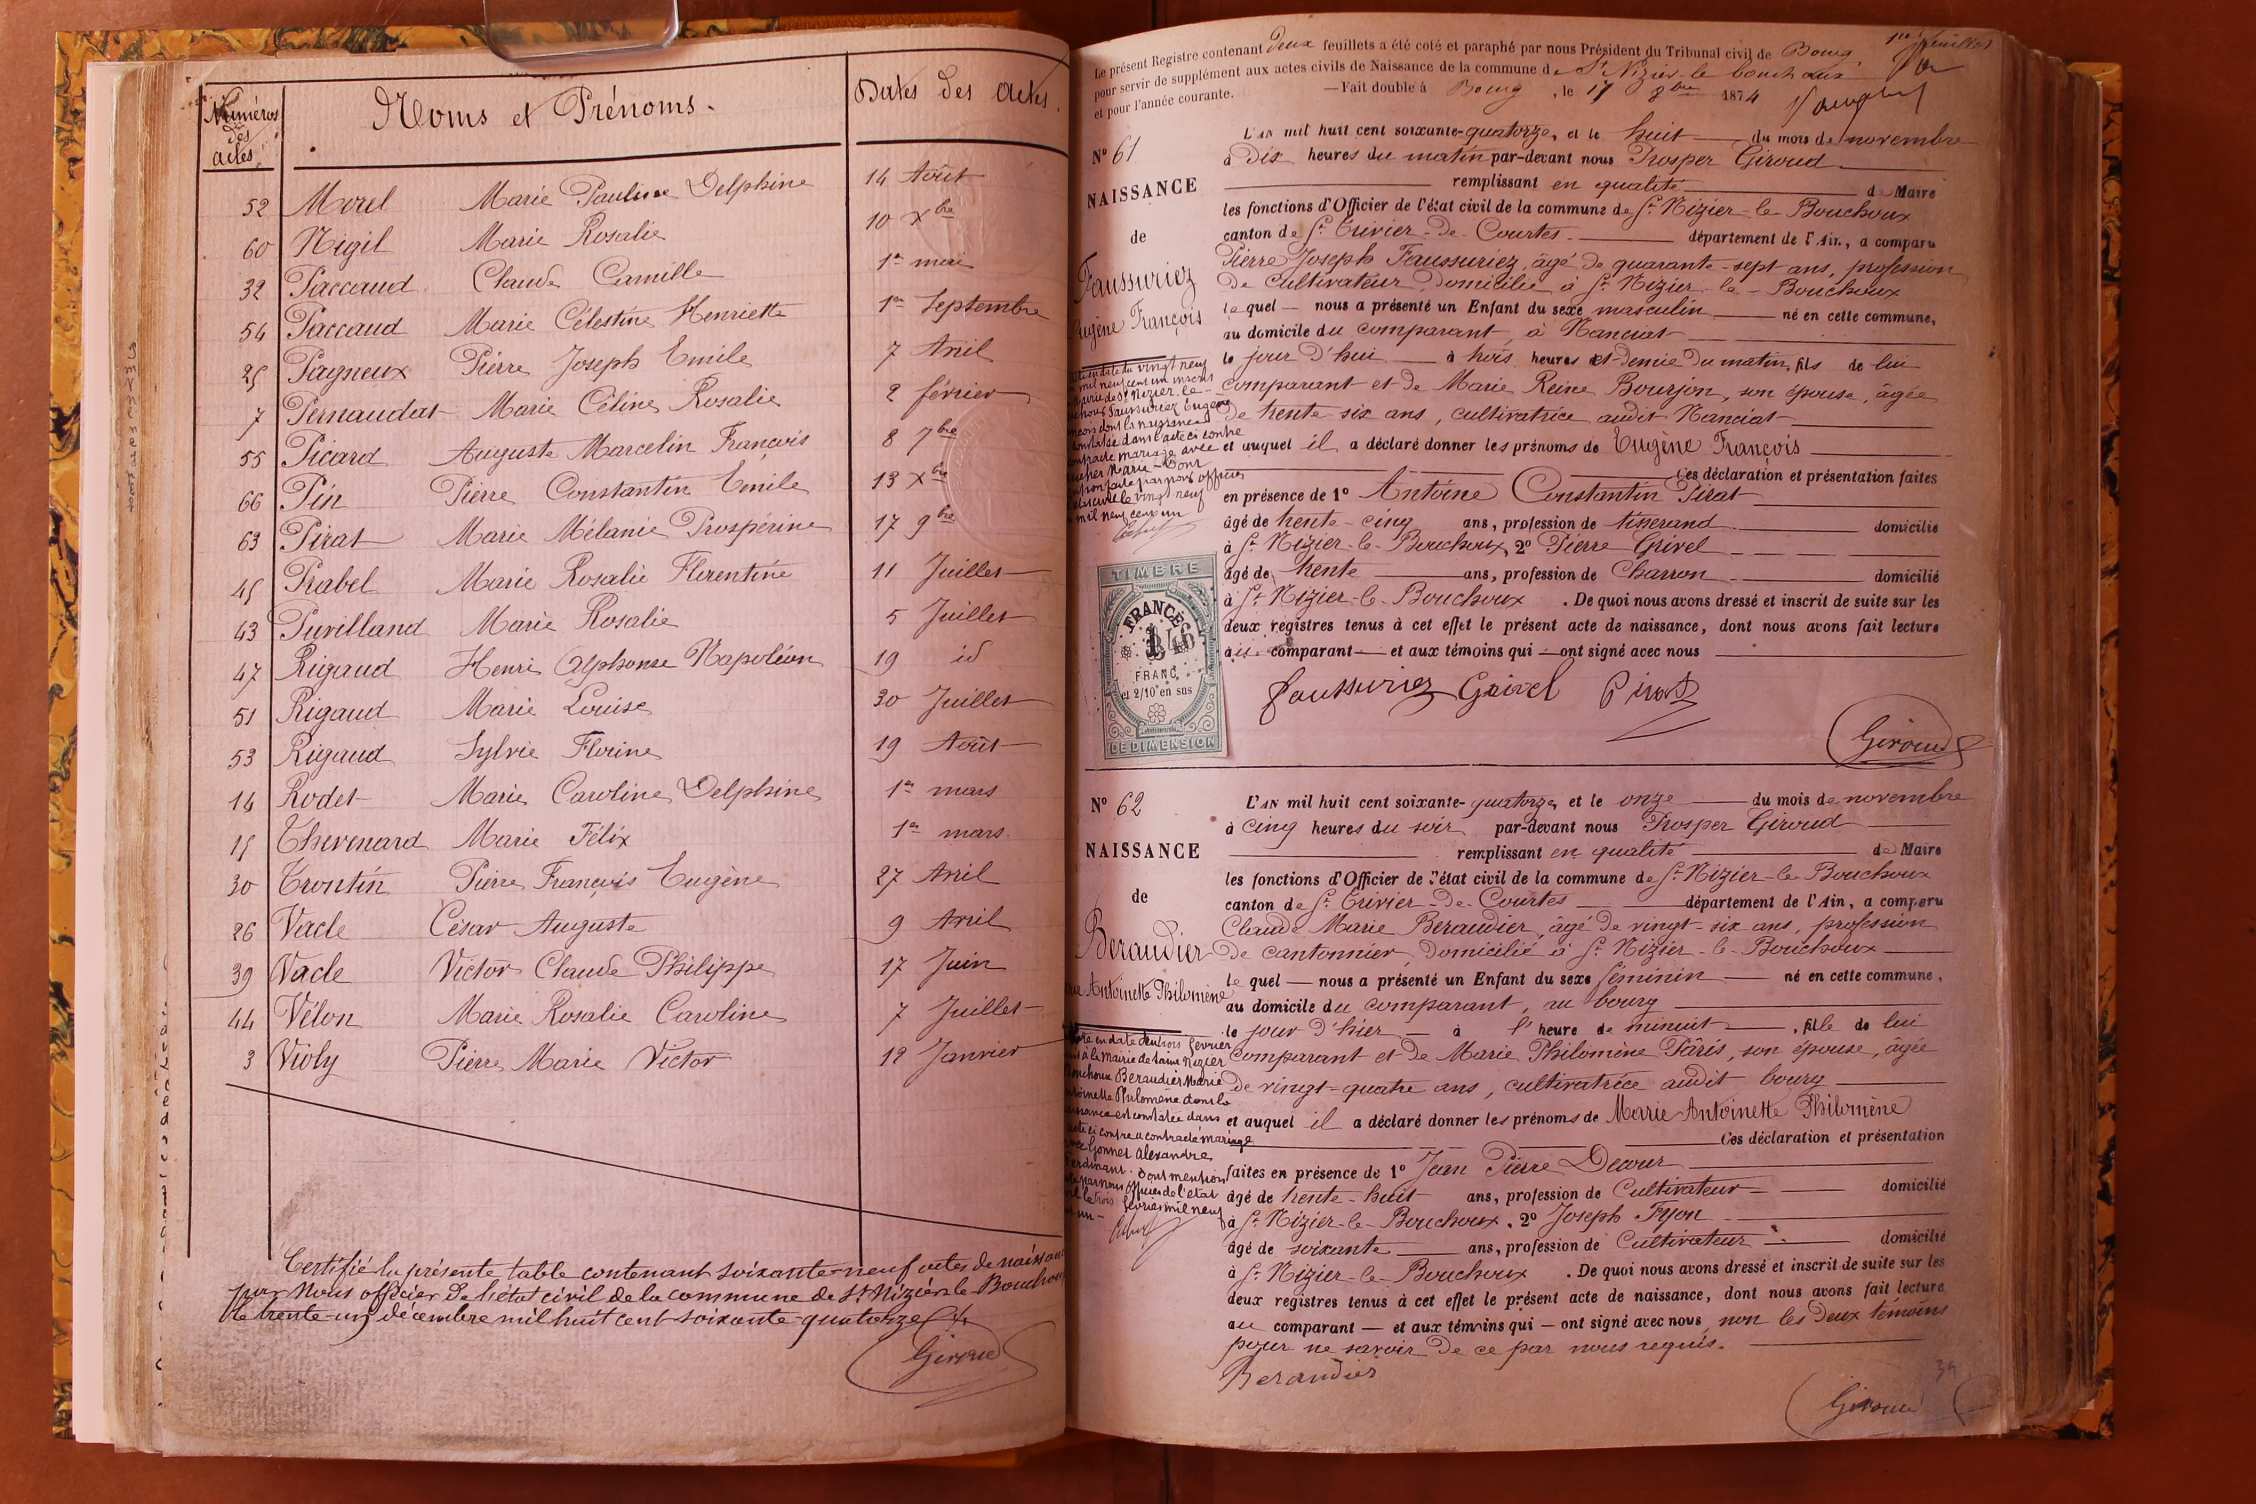 Numéros des actes
Noms et Prénoms.
Dates des actes.
52 Morel Marie Pauline Delphine 14 Août
60 Nigil Marie Rosalie 10 Xbre
32 Paccaud Claude Camille 1er mai
54 Paccaud Marie Célestine Henriette 1er Septembre
25 Pagneux Pierre Joseph Emile 7 Avril
7 Pernaudat Marie Céline Rosalie 2 février
55 Picard Auguste Marcelin François 8 7bre
66 Pin Pierre Constantin Emile 13 Xbre
63 Pirat Marie Mélanie Prospérine 17 9bre
45 Prabel Marie Rosalie Florentine 11 Juillet
43 Puvilland Marie Rosalie 5 Juillet
47 Rigaud Henri Alphonse Napoléon 19 id
51 Rigaud Marie Louise 30 Juillet
53 Rigaud Sylvie Florine 19 Août
14 Rodet Marie Caroline Delphine 1er mars
15 Thevenard Marie Félix 1er mars.
30 Trontin Pierre François Eugène 27 Avril
26 Vacle César Auguste 9 Avril
39 Vacle Victor Claude Philippe 17 Juin
44 Vélon Marie Rosalie Caroline 7 Juillet
3 Violy Pierre Marie Victor 12 Janvier
Certifié la présente table contenant soixante-neuf actes de naissance
par Nous officier de l'état civil de la commune de St Nizier le Bouchoux
le trente-un décembre mil huit cent soixante-quatorze
Giroud
1er feuillet
Le présent Registre contenant deux feuillets a été coté et paraphé par nous Président du Tribunal civil de Bourg
pour servir de supplément aux actes civils de Naissance de la commune de St Nizier-le bouchoux
et pour l'année courante. — Fait double à Bourg, le 17 8bre 1874
N° 61
NAISSANCE
de
Faussuriez
Eugène François
L'AN mil huit cent soixante-quatorze, et le huit du mois de novembre
à Dix heures du matin par-devant nous Prosper Giroud
remplissant en qualité de Maire
les fonctions d'Officier de l'état civil de la commune de St Nizier-le-Bouchoux
canton de St Trivier-de-Courtes département de l'Ain, a comparu
Pierre Joseph Faussuriez, âgé de quarante-sept ans, profession
de cultivateur domicilié à St Nizier-le-Bouchoux
le quel — nous a présenté un Enfant du sexe masculin né en cette commune,
au domicile du comparant, à Nanciat
le jour d'hui à trois heures et demie du matin, fils de lui
comparant et de Marie Reine Bourjon, son épouse, âgée
de trente six ans, cultivatrice audit Nanciat
et auquel il a déclaré donner les prénoms de Eugène François
Ces déclaration et présentation faites
en présence de 1° Antoine Constantin Pirat
âgé de trente-cinq ans, profession de tisserand domicilié
à St Nizier-le-Bouchoux, 2° Pierre Grivel
âgé de trente ans, profession de Charron domicilié
à St Nizier-le-Bouchoux. De quoi nous avons dressé et inscrit de suite sur les
deux registres tenus à cet effet le présent acte de naissance, dont nous avons fait lecture
comparant — et aux témoins qui — ont signé avec nous
Faussuriez Grivel Pirat
Giroud
TIMBRE
FRANCE
1
FRANC
et 2/10es en sus
DE DIMENSION
N° 62
NAISSANCE
de
Beraudier
Antoinette Philomène
L'AN mil huit cent soixante-quatorze, et le onze du mois de novembre
à cinq heures du soir par-devant nous Prosper Giroud
remplissant en qualité de Maire
les fonctions d'Officier de l'état civil de la commune de St Nizier-le-Bouchoux
canton de St Trivier-de-Courtes département de l'Ain, a comparu
Claude Marie Beraudier, âgé de vingt-six ans, profession
de cantonnier, domicilié à St Nizier-le-Bouchoux
le quel — nous a présenté un Enfant du sexe féminin né en cette commune,
au domicile du comparant, au bourg
le jour d'hier à l'heure de minuit, fille de lui
comparant et de Marie Philomène Pâris, son épouse, âgée
de vingt-quatre ans, cultivatrice audit bourg
et auquel il a déclaré donner les prénoms de Marie Antoinette Philomène
Ces déclaration et présentation
faites en présence de 1° Jean Pierre Decour
âgé de trente-huit ans, profession de Cultivateur domicilié
à St Nizier-le-Bouchoux, 2° Joseph Fyon
âgé de soixante ans, profession de Cultivateur domicilié
à St Nizier-le-Bouchoux. De quoi nous avons dressé et inscrit de suite sur les
deux registres tenus à cet effet le présent acte de naissance, dont nous avons fait lecture
au comparant — et aux témoins qui — ont signé avec nous, non les deux témoins
pour ne savoir de ce par nous requis.
Beraudier
Giroud